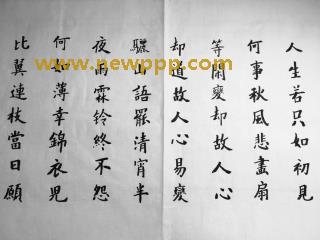 人生若只如初見
何事秋風悲畫扇
等閑變却故人心
却道故人心易變
驪山語罷清宵半
夜雨霖鈴終不怨
何如薄幸錦衣兒
比翼連枝當日願
www.newppp.com